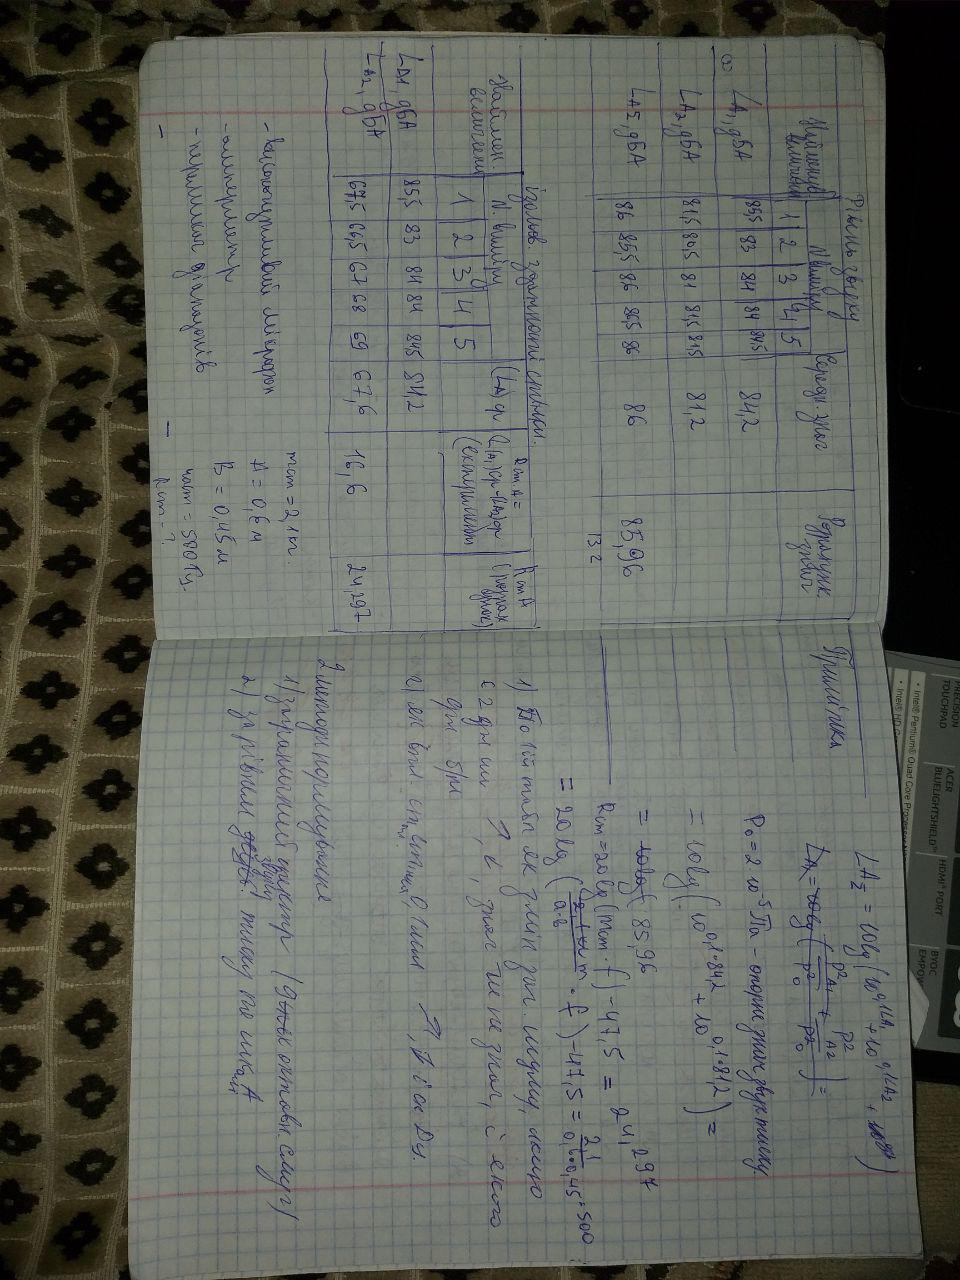 PRECISION
TOUCHPAD
ACER
BLUELIGHTSHIELD™
HDMI® PORT
BYOC
EMPOW
• Intel® Pentium® Quad Core Processor
• Intel® HD G
Рівень звуку
Найменув. величини
N виміру
Середн. знач
Розрахунк. знач
Примітка
1 2 3 4 5
LA1, дБА 85,5 83 84 84 84,5 84,2
LA2, дБА 81,5 80,5 81 81,5 81,5 81,2
LAΣ, дБА 86 85,5 86 86,5 86 86 85,96
132
ізольов. здатності стінки.
Наймен. величини
N. виміру
(LA) ср
Rст.А = (LA1)ср-(LA2)ср (експеримент)
RстА (розрах. знач)
1 2 3 4 5
LA1, дБА 85,5 83 84 84 84,5 84,2
LA2, дБА 67,5 66,5 67 68 69 67,6 16,6 24,297
- високочутливий мікрофон
- амперметр
- перемикач діапазонів
–
mст = 2,1 кг.
A = 0,6 м
B = 0,45 м
част = 500 Гц.
Rст - ?
LAΣ = 10lg(10^0,1LA1 + 10^0,1LA2 +
LA = 10lg(P²A1/P²0 + P²A2/P²0) =
P0 = 2·10^-5 Па – опорне знач звук тиску
= 10lg(10^0,1·84,2 + 10^0,1·81,2) =
= 10lg( 85,96
Rст = 20lg(mст·f) – 47,5 = 24,297
= 20lg(m/a·b · f) – 47,5 = 2,1/0,6·0,45 · 500
1) По цій табл як змін заг. шуму, якщо
є 2 дж ↗, ↙, знач чи не знач, і якого
дж б/м
2) як впл. 0,1мм ↗, і ск Гц.
2 методи нормування
1) за граничний спектр (9 октавн. смуг)
2) за рівнем звуку тиску по шкалі А